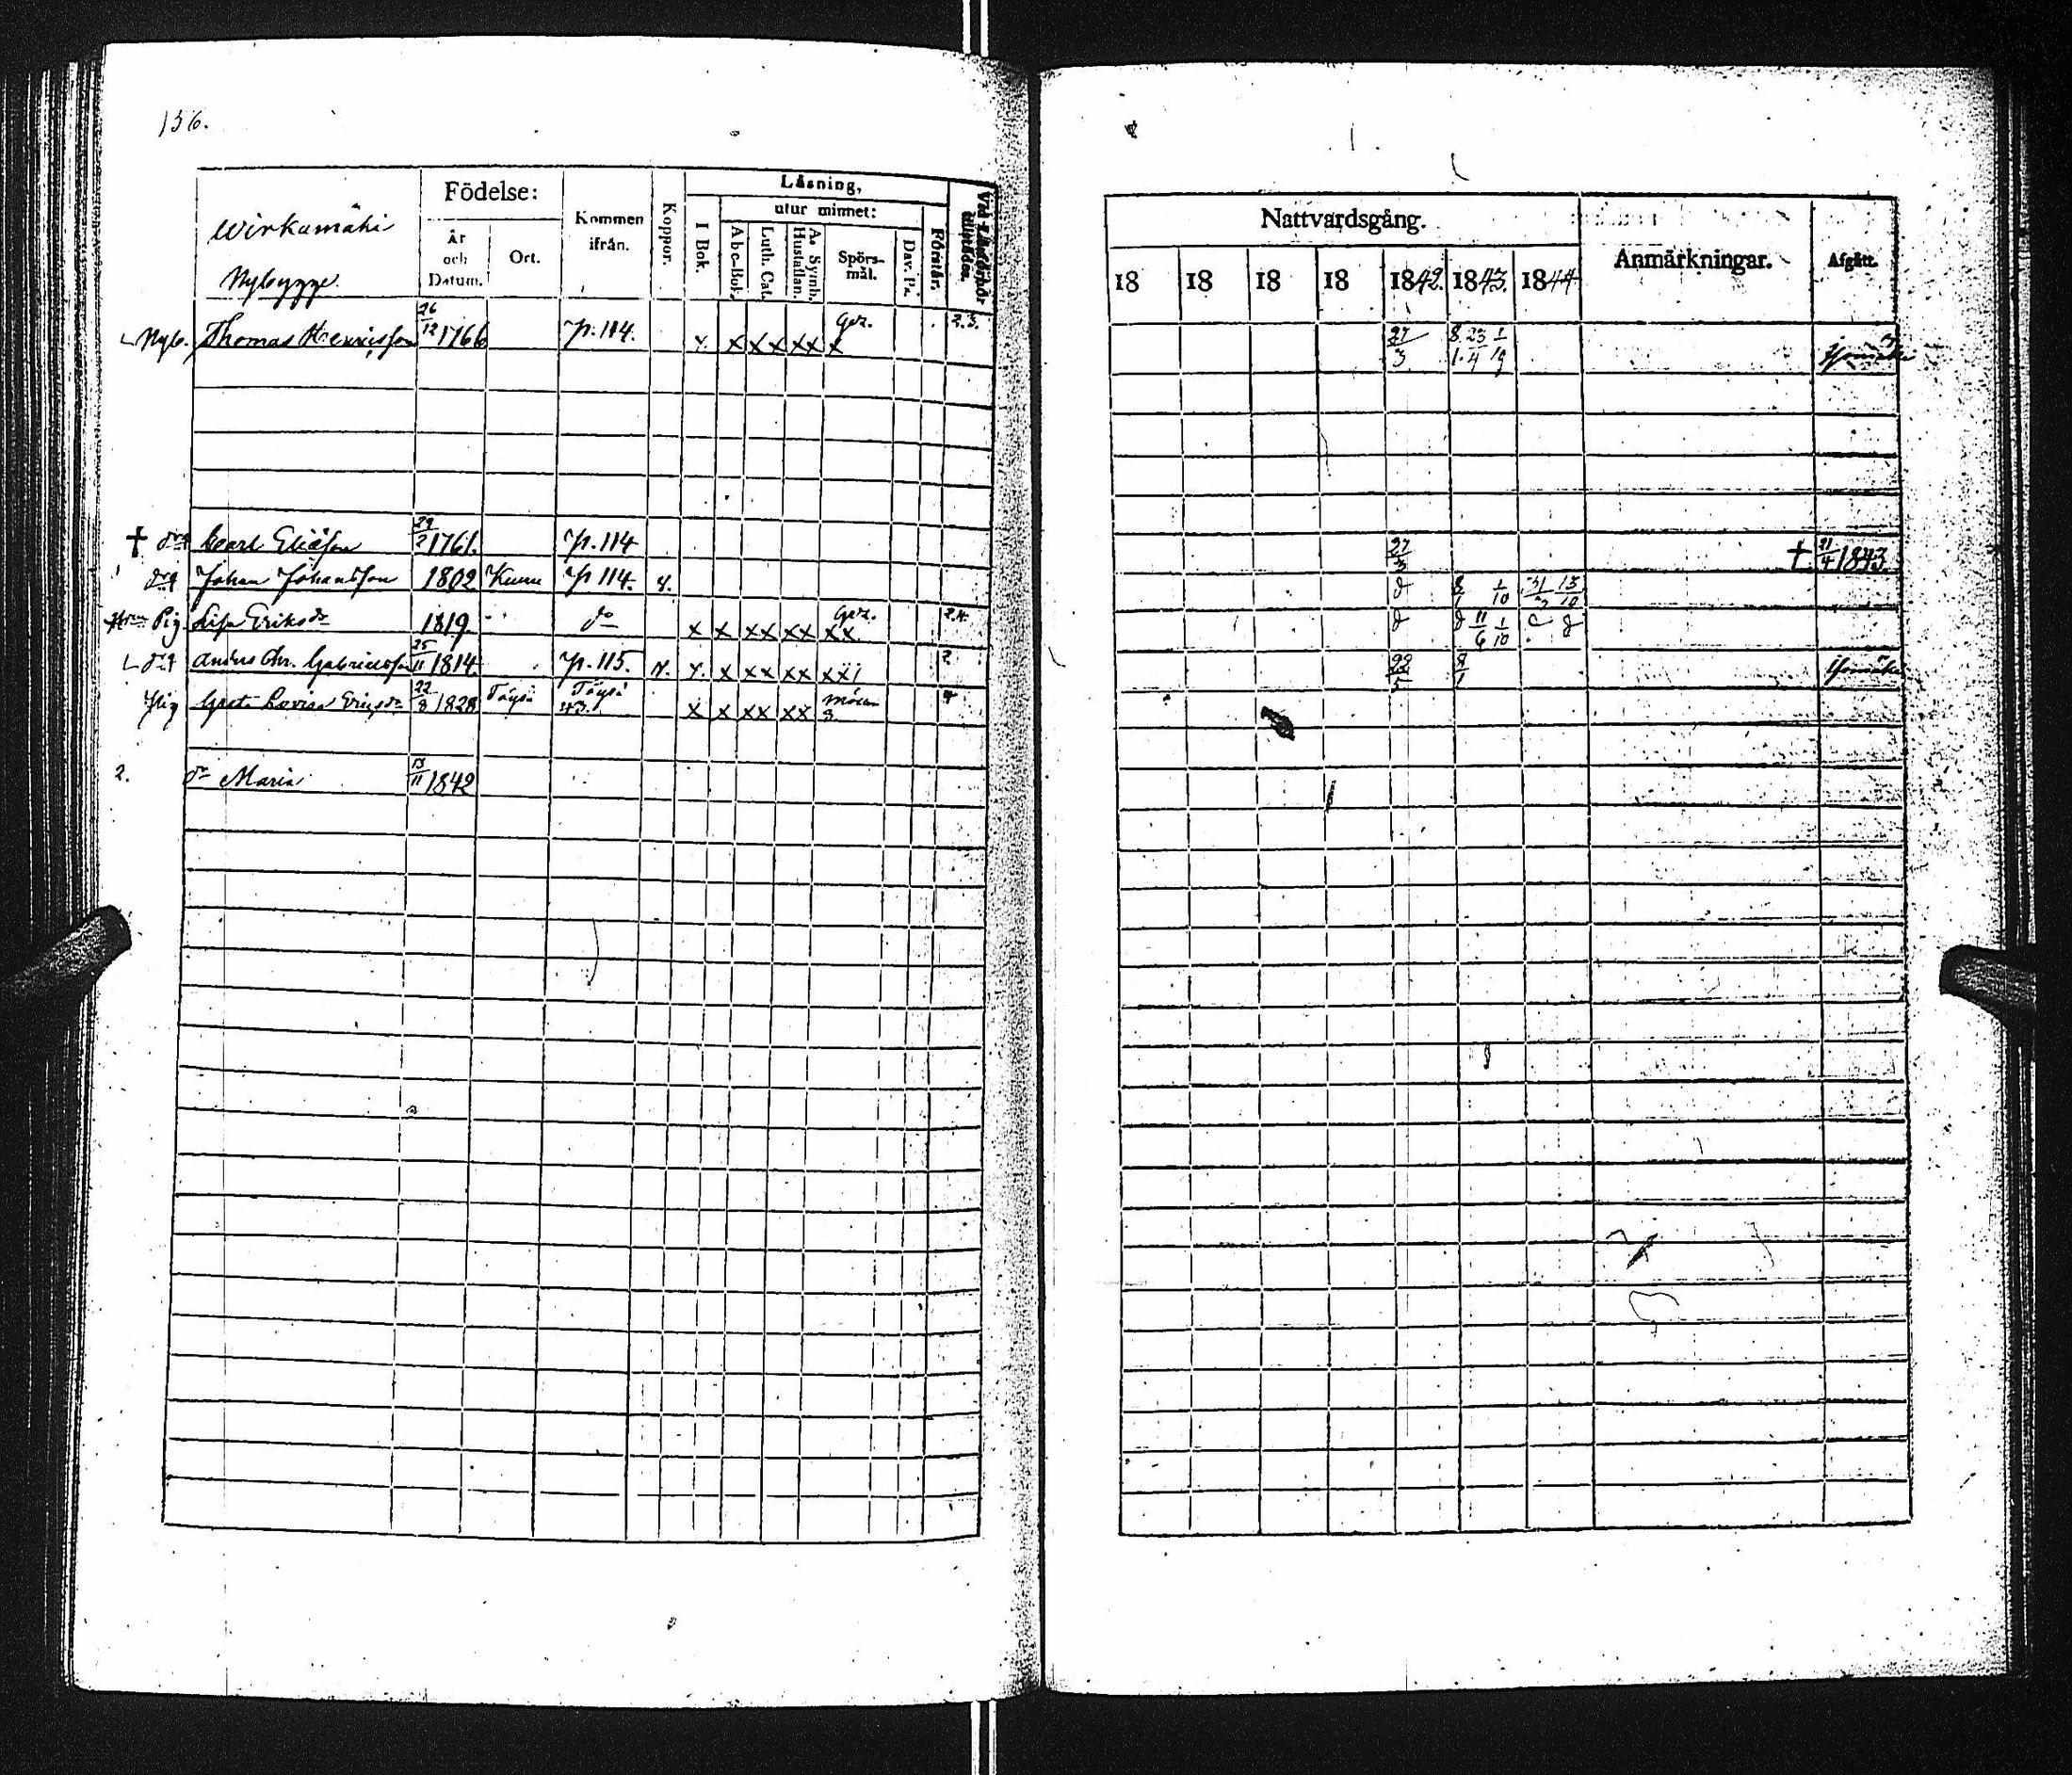 136.
Födelse:
Läsning,
utur minnet:
Wirkamäki
Nybygge.
År och Datum.
Ort.
Kommen ifrån.
Koppor.
I Bok.
Abc-Bok.
Luth. Cat.
A. Symb. Hustaflan.
Spörsmål.
Dav. Ps.
Förstår.
Nyb. Thomas Henricsson 26/12 1766 p. 114. x x x x x x x 2.3.
† drg Carl Eliasson 29/2 1761. p. 114
drg Johan Johansson 1802 Kuru p 114.
Pig Lisa Eriksdr 1819. do x x x x x x x x 2.4.
drg Anders Chr. Gabrielsson 25/11 1814. p. 115. x x x x x 2
Pig Greta Lovisa Ericsdr 22/8 1828 Töysä Töysä 43. x x x x x x 3 4
2. dr Maria 13/11 1842
Nattvardsgång.
Anmärkningar.
Afgått.
18 18 18 18 1842. 1843. 1844
27/3 8/1 23/4 1/9
27/3 † 21/4 1843.
8/1 1/10 31/3 13/10
11/6 1/10
22/5 8/1